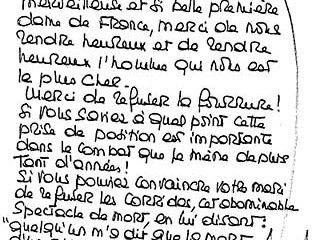 merveilleuse et si belle première
dame de France, merci de nous
rendre heureux et de rendre
heureux l'homme qui nous est
le plus cher.
Merci de refuser la fourrure!
Si vous saviez à quel point cette
prise de position est importante
dans le combat que je mène depuis
tant d'années!
Si vous pouviez convaincre votre mari
de refuser les corridas, cet abominable
spectacle de mort, en lui disant:
"Quelqu'un m'a dit que la mort